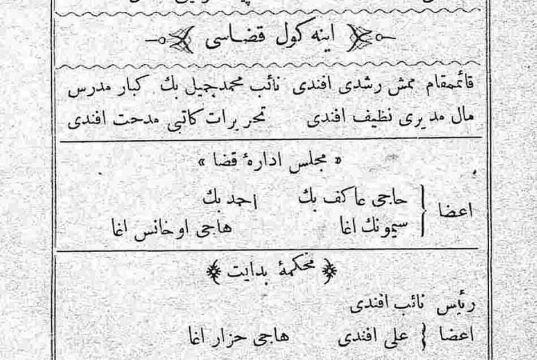 اینه كول قضاسی
قائممقام ممش رشدی افندی نائب محمدجمیل بك كبار مدرس
مال مدیری نظیف افندی تحریرات كاتبی مدحت افندی
« مجلس ادارهٔ قضا »
اعضا { حاجی عاكف بك احمد بك
سیمونك اغا هاجی اوخانس اغا
محكمهٔ بدایت
رئیس نائب افندی
اعضا { علی افندی هاجی حزار اغا